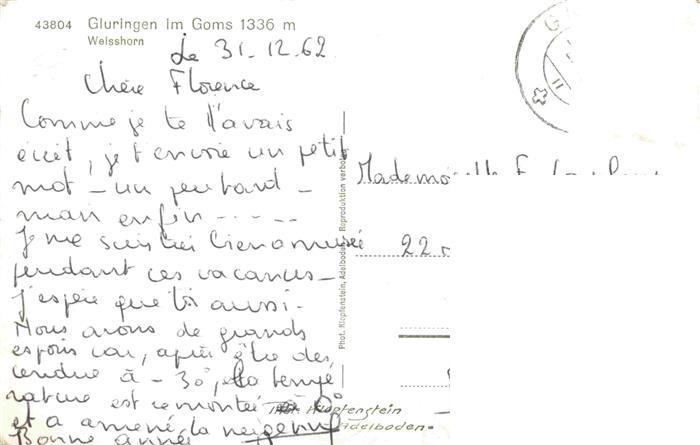 43804 Gluringen im Goms 1336 m
Weisshorn
Le 31.12.62
Chère Florence
Comme je te l'avais
écrit, je t'envoie un petit
mot - un peu tard -
mais enfin -----
Je me suis bien amusée
pendant ces vacances -
J'espère que toi aussi.
Nous avons de grands
espoirs car, après être des
cendue à - 30°, la tempé
rature est remontée à 0°
et a amené la neige
Bonne année
Mademoiselle F.
22
Phot. Klopfenstein, Adelboden. Reproduktion verboten
Phot. Klopfenstein
Adelboden.